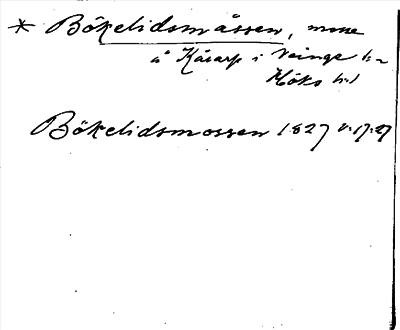 * Bökelidsmåssen, mosse
å Kåarp i Veinge s:n
Höks h:d
Bökelidsmossen 1827 v:17:27